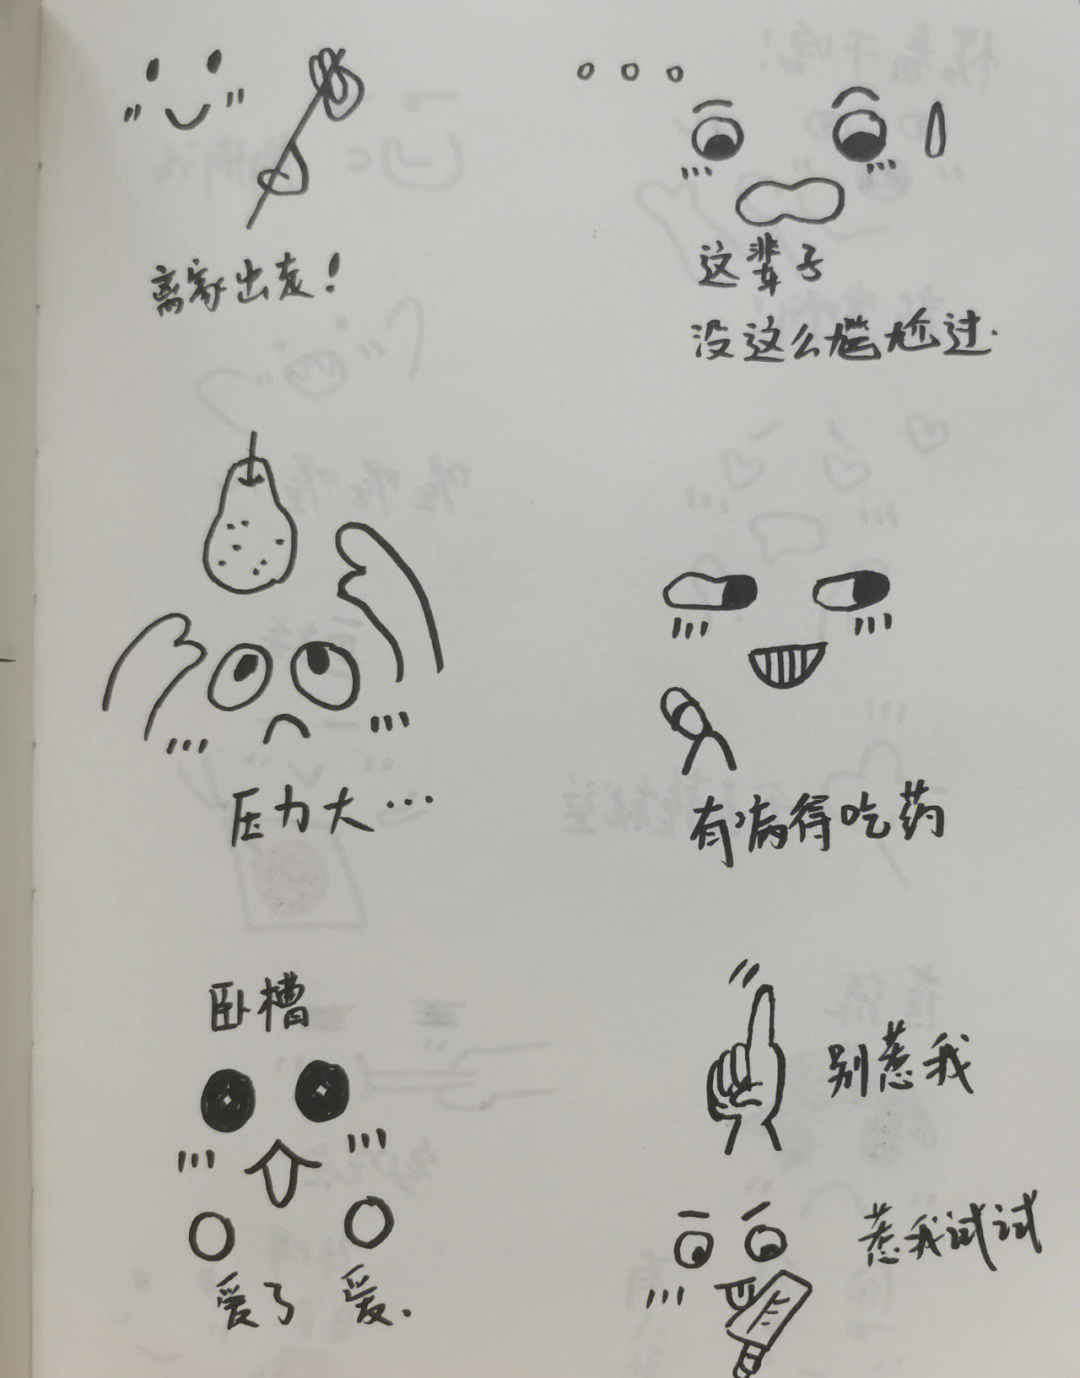 离家出走!
这辈子
没这么尴尬过.
压力大...
有病得吃药
卧槽
爱了 爱.
别惹我
惹我试试